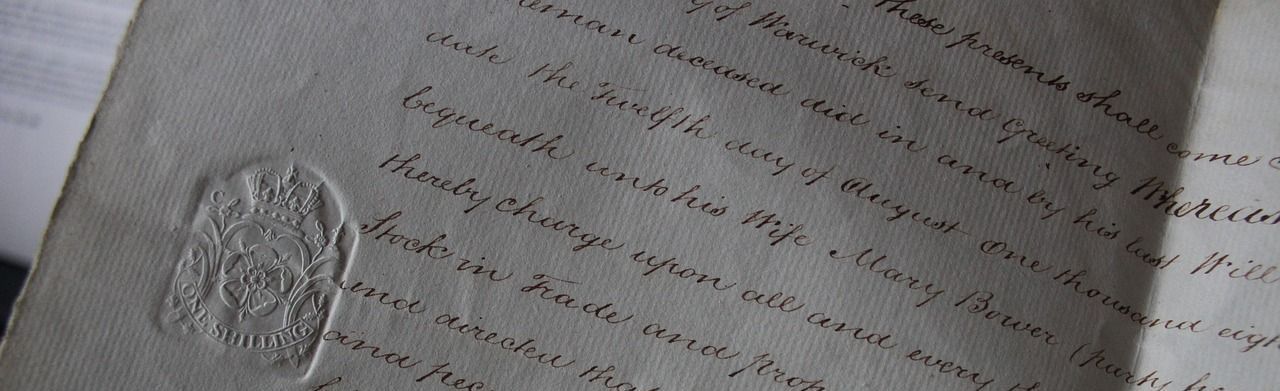 These presents shall come
of Warwick send Greeting Whereas
deceased did in and by his last Will
date the Twelfth day of August One thousand
bequeath unto his Wife Mary Bower (party
thereby charge upon all and every
Stock in Trade and
and directed
and
ONE SHILLING